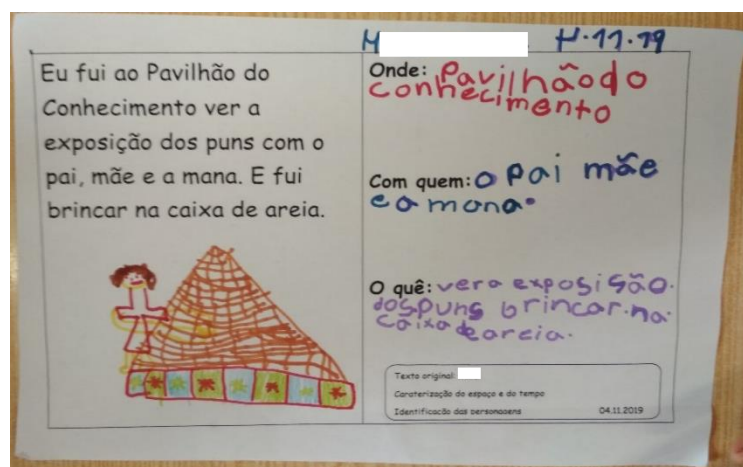 4.11.19
Eu fui ao Pavilhão do
Conhecimento ver a
exposição dos puns com o
pai, mãe e a mana. E fui
brincar na caixa de areia.
Onde: Pavilhão do
conhecimento
Com quem: o pai mãe
e a mana.
O quê: ver a exposisão.
dos puns brincar. na.
caixa de areia.
Texto original:
Caraterização do espaço e do tempo
Identificação das personagens 04.11.2019